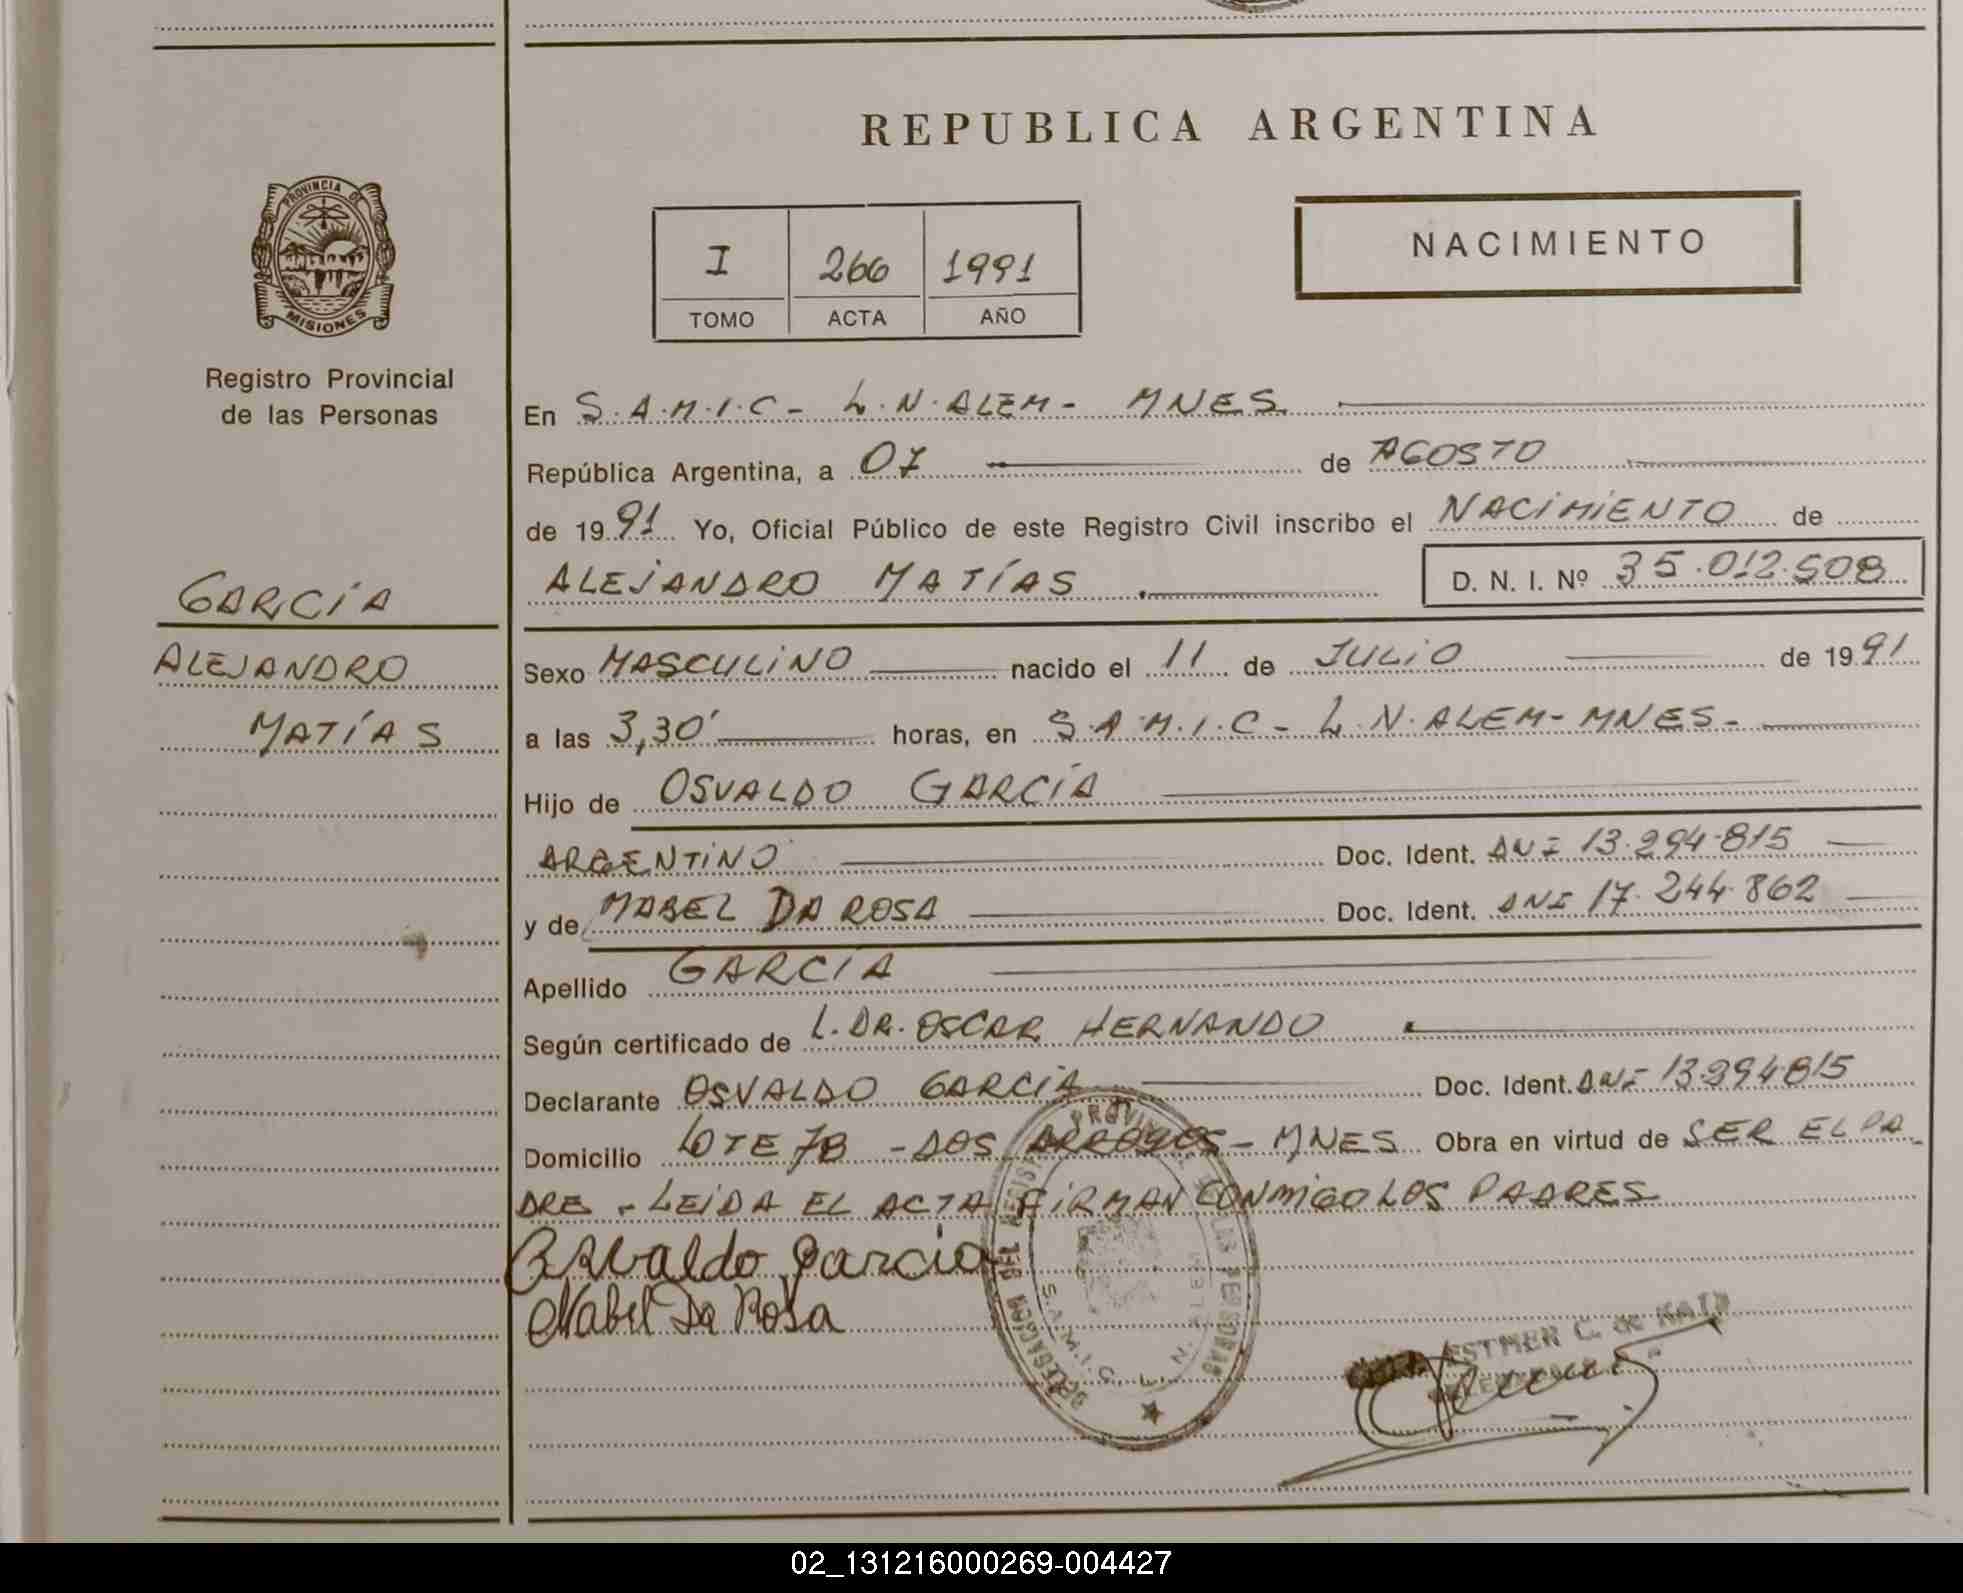 REPUBLICA ARGENTINA
PROVINCIA DE
MISIONES
Registro Provincial
de las Personas
I 266 1991
TOMO ACTA AÑO
NACIMIENTO
En S.A.M.I.C - L.N.ALEM - MNES
República Argentina, a 07 de AGOSTO
de 1991 Yo, Oficial Público de este Registro Civil inscribo el NACIMIENTO de
ALEJANDRO MATÍAS D. N. I. Nº 35.012.508
GARCÍA
ALEJANDRO
MATÍAS
Sexo MASCULINO nacido el 11 de JULIO de 1991
a las 3,30' horas, en S.A.M.I.C - L.N.ALEM - MNES -
Hijo de OSVALDO GARCÍA
ARGENTINO Doc. Ident. DNI 13.294.815
y de MABEL DA ROSA Doc. Ident. DNI 17.244.862
Apellido GARCÍA
Según certificado de DR. OSCAR HERNANDO
Declarante OSVALDO GARCÍA Doc. Ident. DNI 13.294.815
Domicilio LOTE 78 - DOS ARROYOS - MNES Obra en virtud de SER EL PA
DRE - LEIDA EL ACTA FIRMAN CONMIGO LOS PADRES
Osvaldo garcia
Mabel Da Rosa
DELEGACION DEL REGISTRO PROVINCIAL DE LAS PERSONAS
S.A.M.I.C. L. N. ALEM
ESTHER C. de
02_131216000269-004427